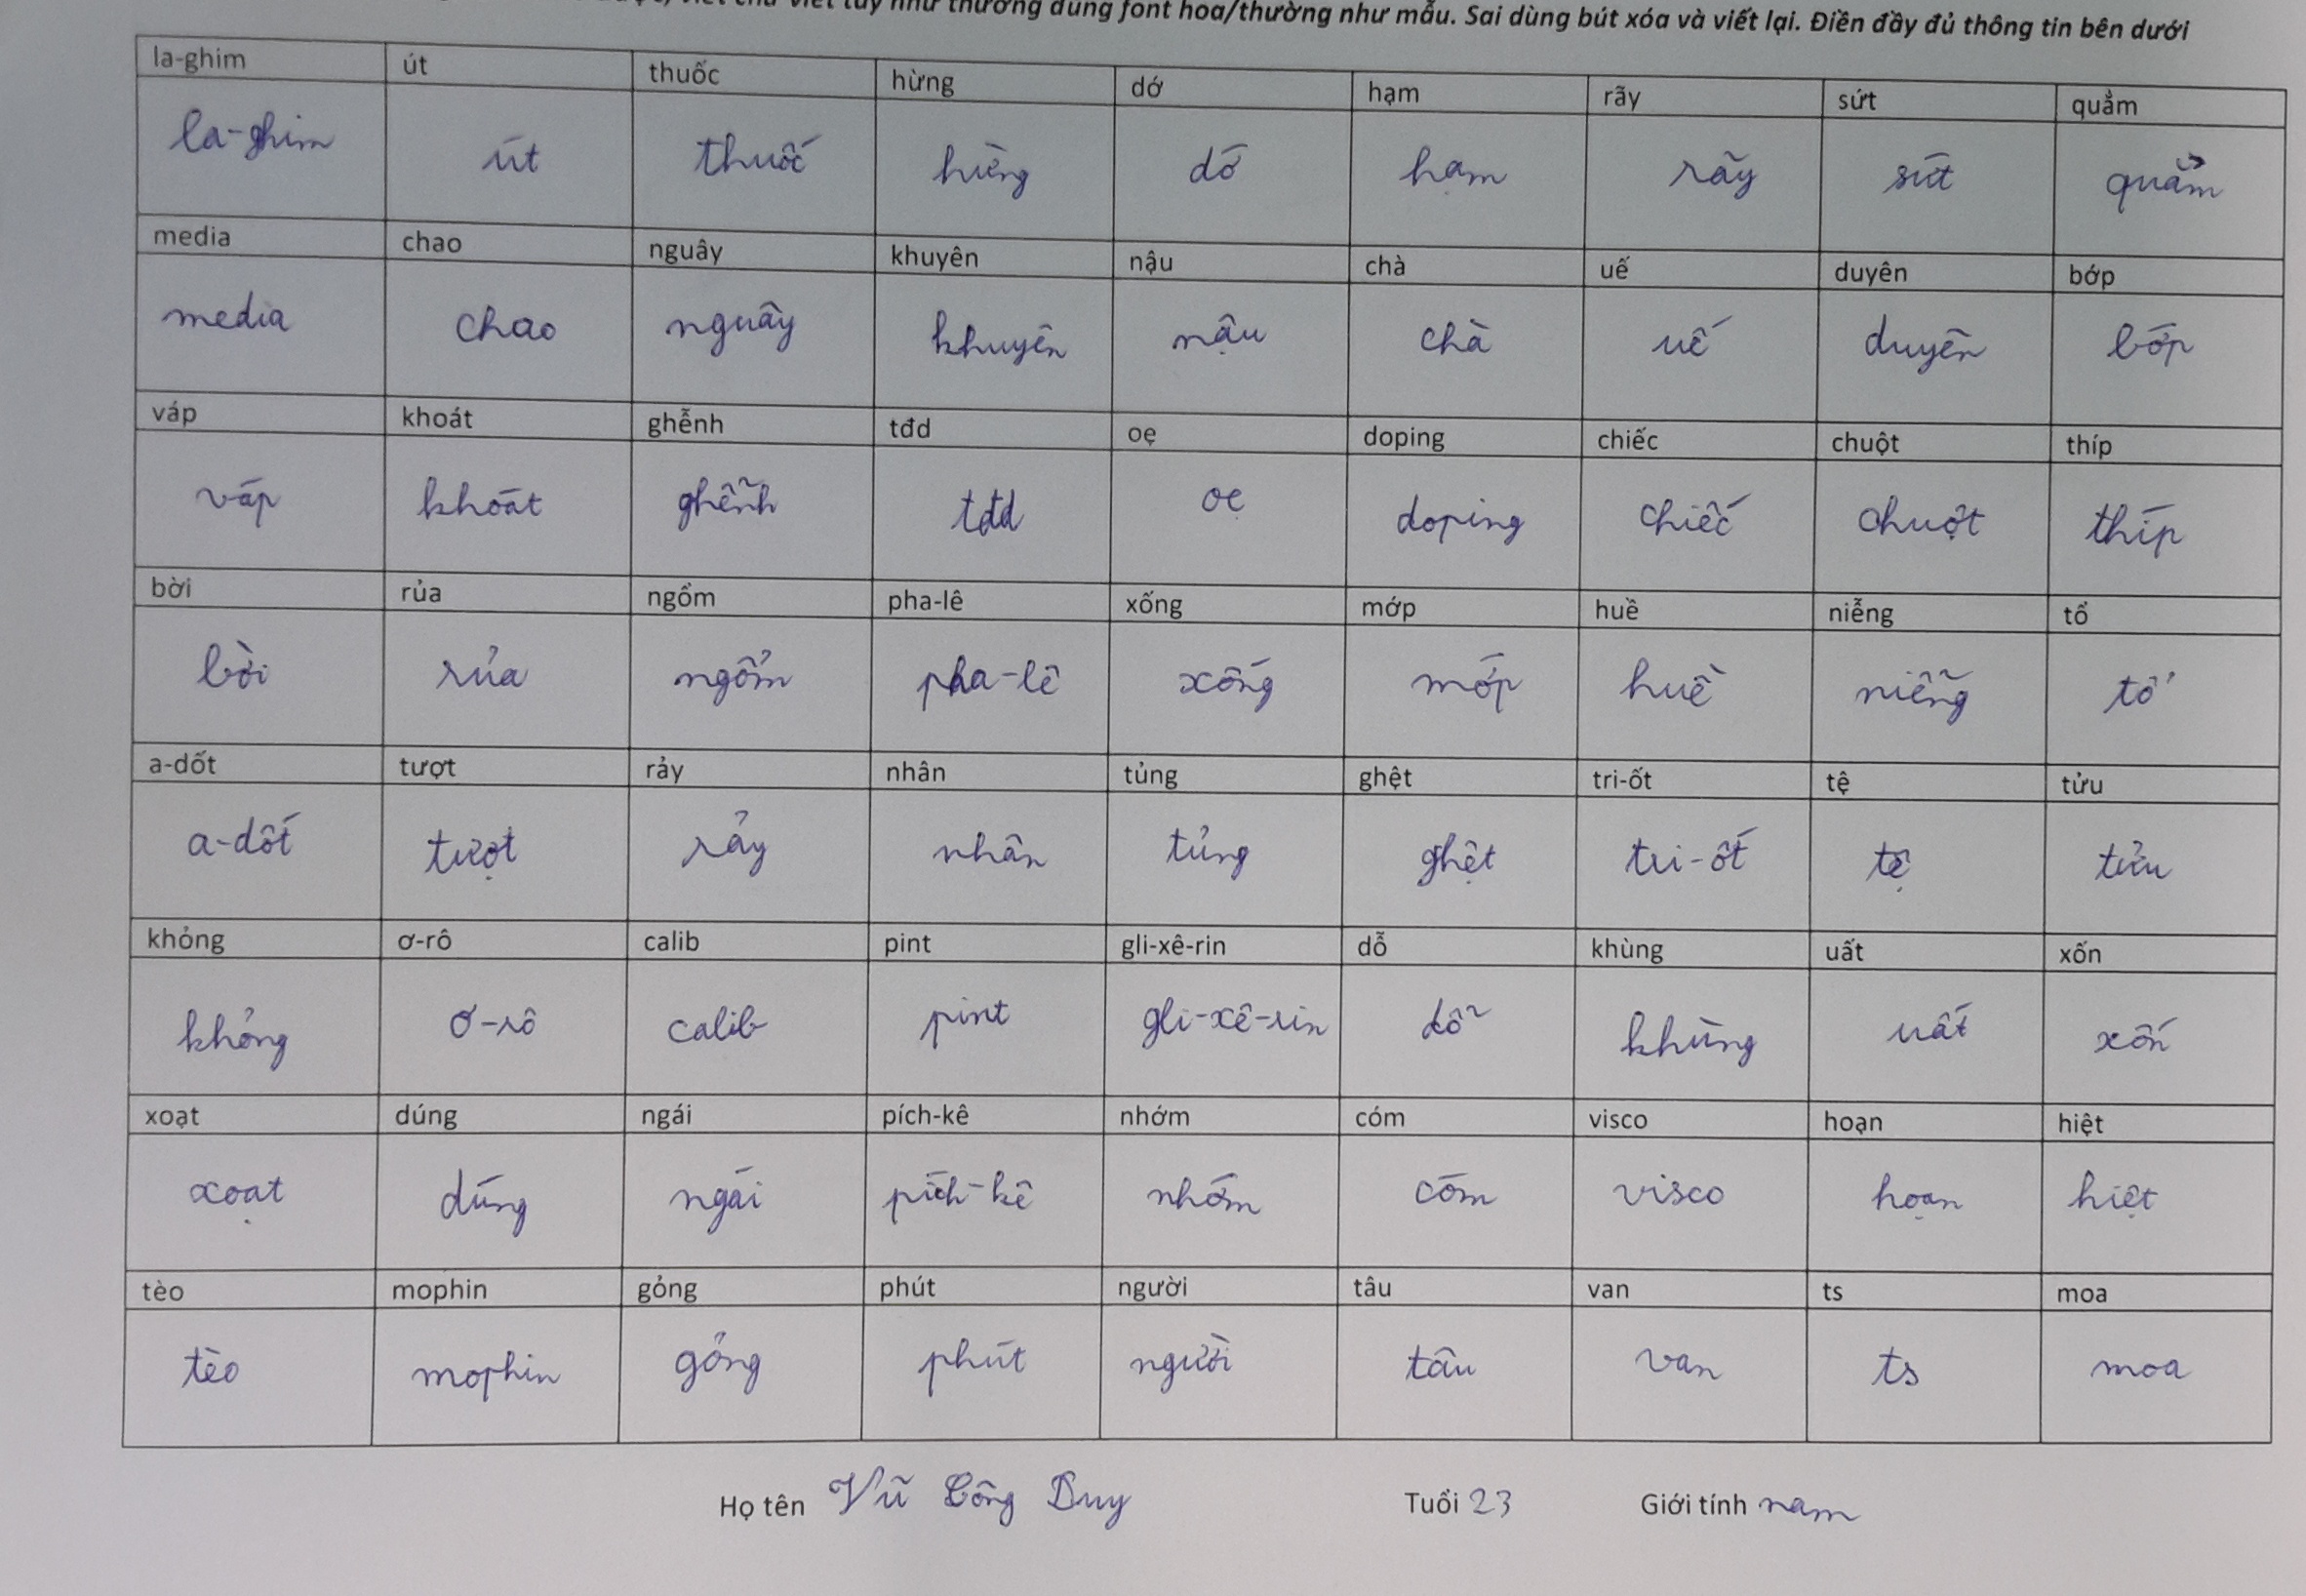 viết chữ viết tay như thường dùng font hoa/thường như mẫu. Sai dùng bút xóa và viết lại. Điền đầy đủ thông tin bên dưới
la-ghim út thuốc hừng dớ hạm rãy sứt quẳm
la-ghim út thuốc hừng dớ hạm rãy sứt quẳm
media chao nguây khuyên nậu chà uế duyên bớp
media chao nguây khuyên nậu chà uế duyên bớp
váp khoát ghễnh tđd oẹ doping chiếc chuột thíp
váp khoát ghễnh tđd oẹ doping chiếc chuột thíp
bời rủa ngổm pha-lê xống mớp huề niễng tổ
bời rủa ngổm pha-lê xống mớp huề niễng tổ
a-dốt tượt rảy nhân tủng ghệt tri-ốt tệ tửu
a-dốt tượt rảy nhân tủng ghệt tri-ốt tệ tửu
khỏng ơ-rô calib pint gli-xê-rin dỗ khùng uất xốn
khỏng ơ-rô calib pint gli-xê-rin dỗ khùng uất xốn
xoạt dúng ngái pích-kê nhớm cóm visco hoạn hiệt
xoạt dúng ngái pích-kê nhớm cóm visco hoạn hiệt
tèo mophin gỏng phút người tâu van ts moa
tèo mophin gỏng phút người tâu van ts moa
Họ tên Vũ Công Duy Tuổi 23 Giới tính nam